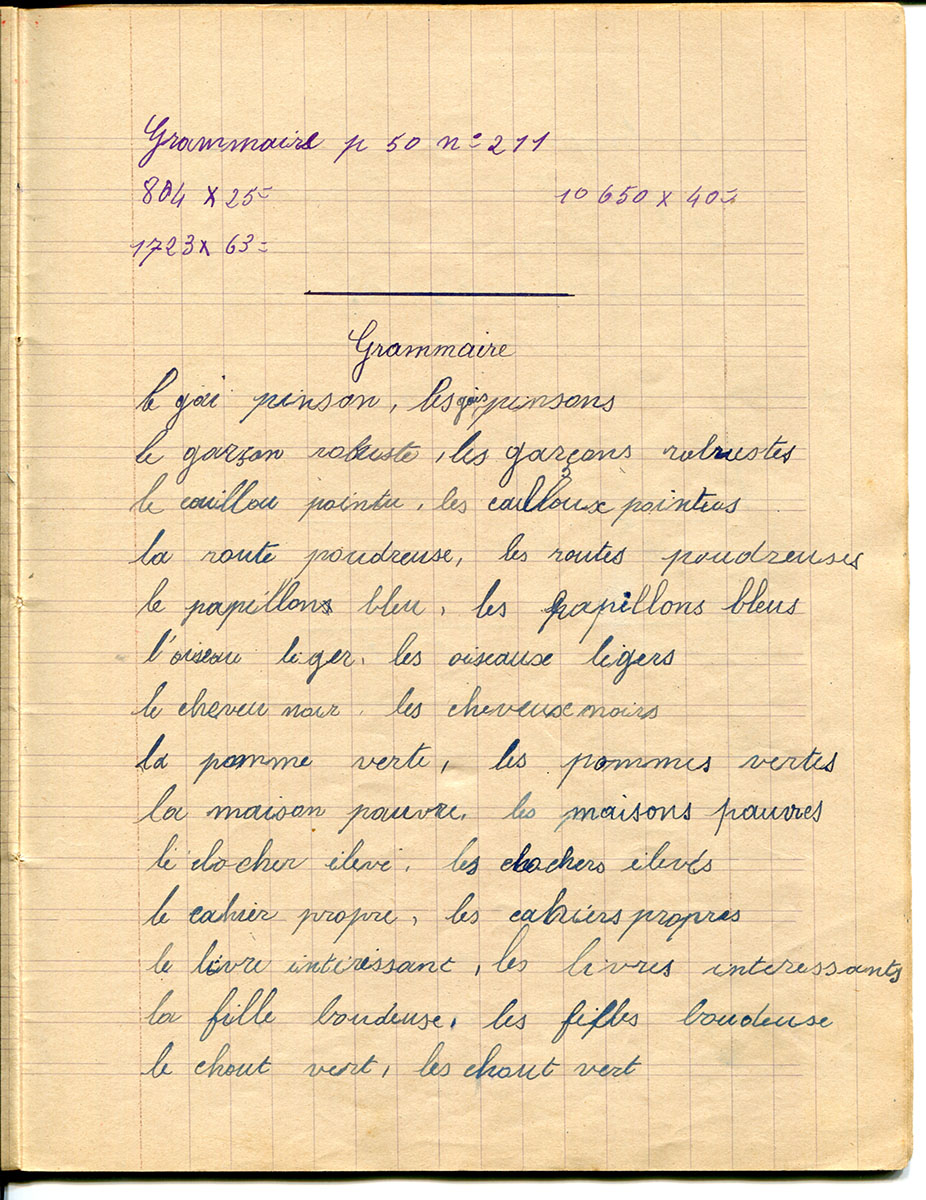 Grammaire p 50 n° 211
804 x 25 =
10 650 x 40 =
1723 x 63 =
Grammaire
le gai pinson, les gais pinsons
le garçon robuste, les garçons robustes
le caillou pointu, les cailloux pointus
la route poudreuse, les routes poudreuses
le papillons bleu, les papillons bleus
l'oiseau léger, les oiseaux légers
le cheveu noir, les cheveux noirs
la pomme verte, les pommes vertes
la maison pauvre, les maisons pauvres
le clocher élevé, les clochers élevés
le cahier propre, les cahiers propres
le livre intéressant, les livres interessants
la fille boudeuse, les filles boudeuse
le chout vert, les chout vert